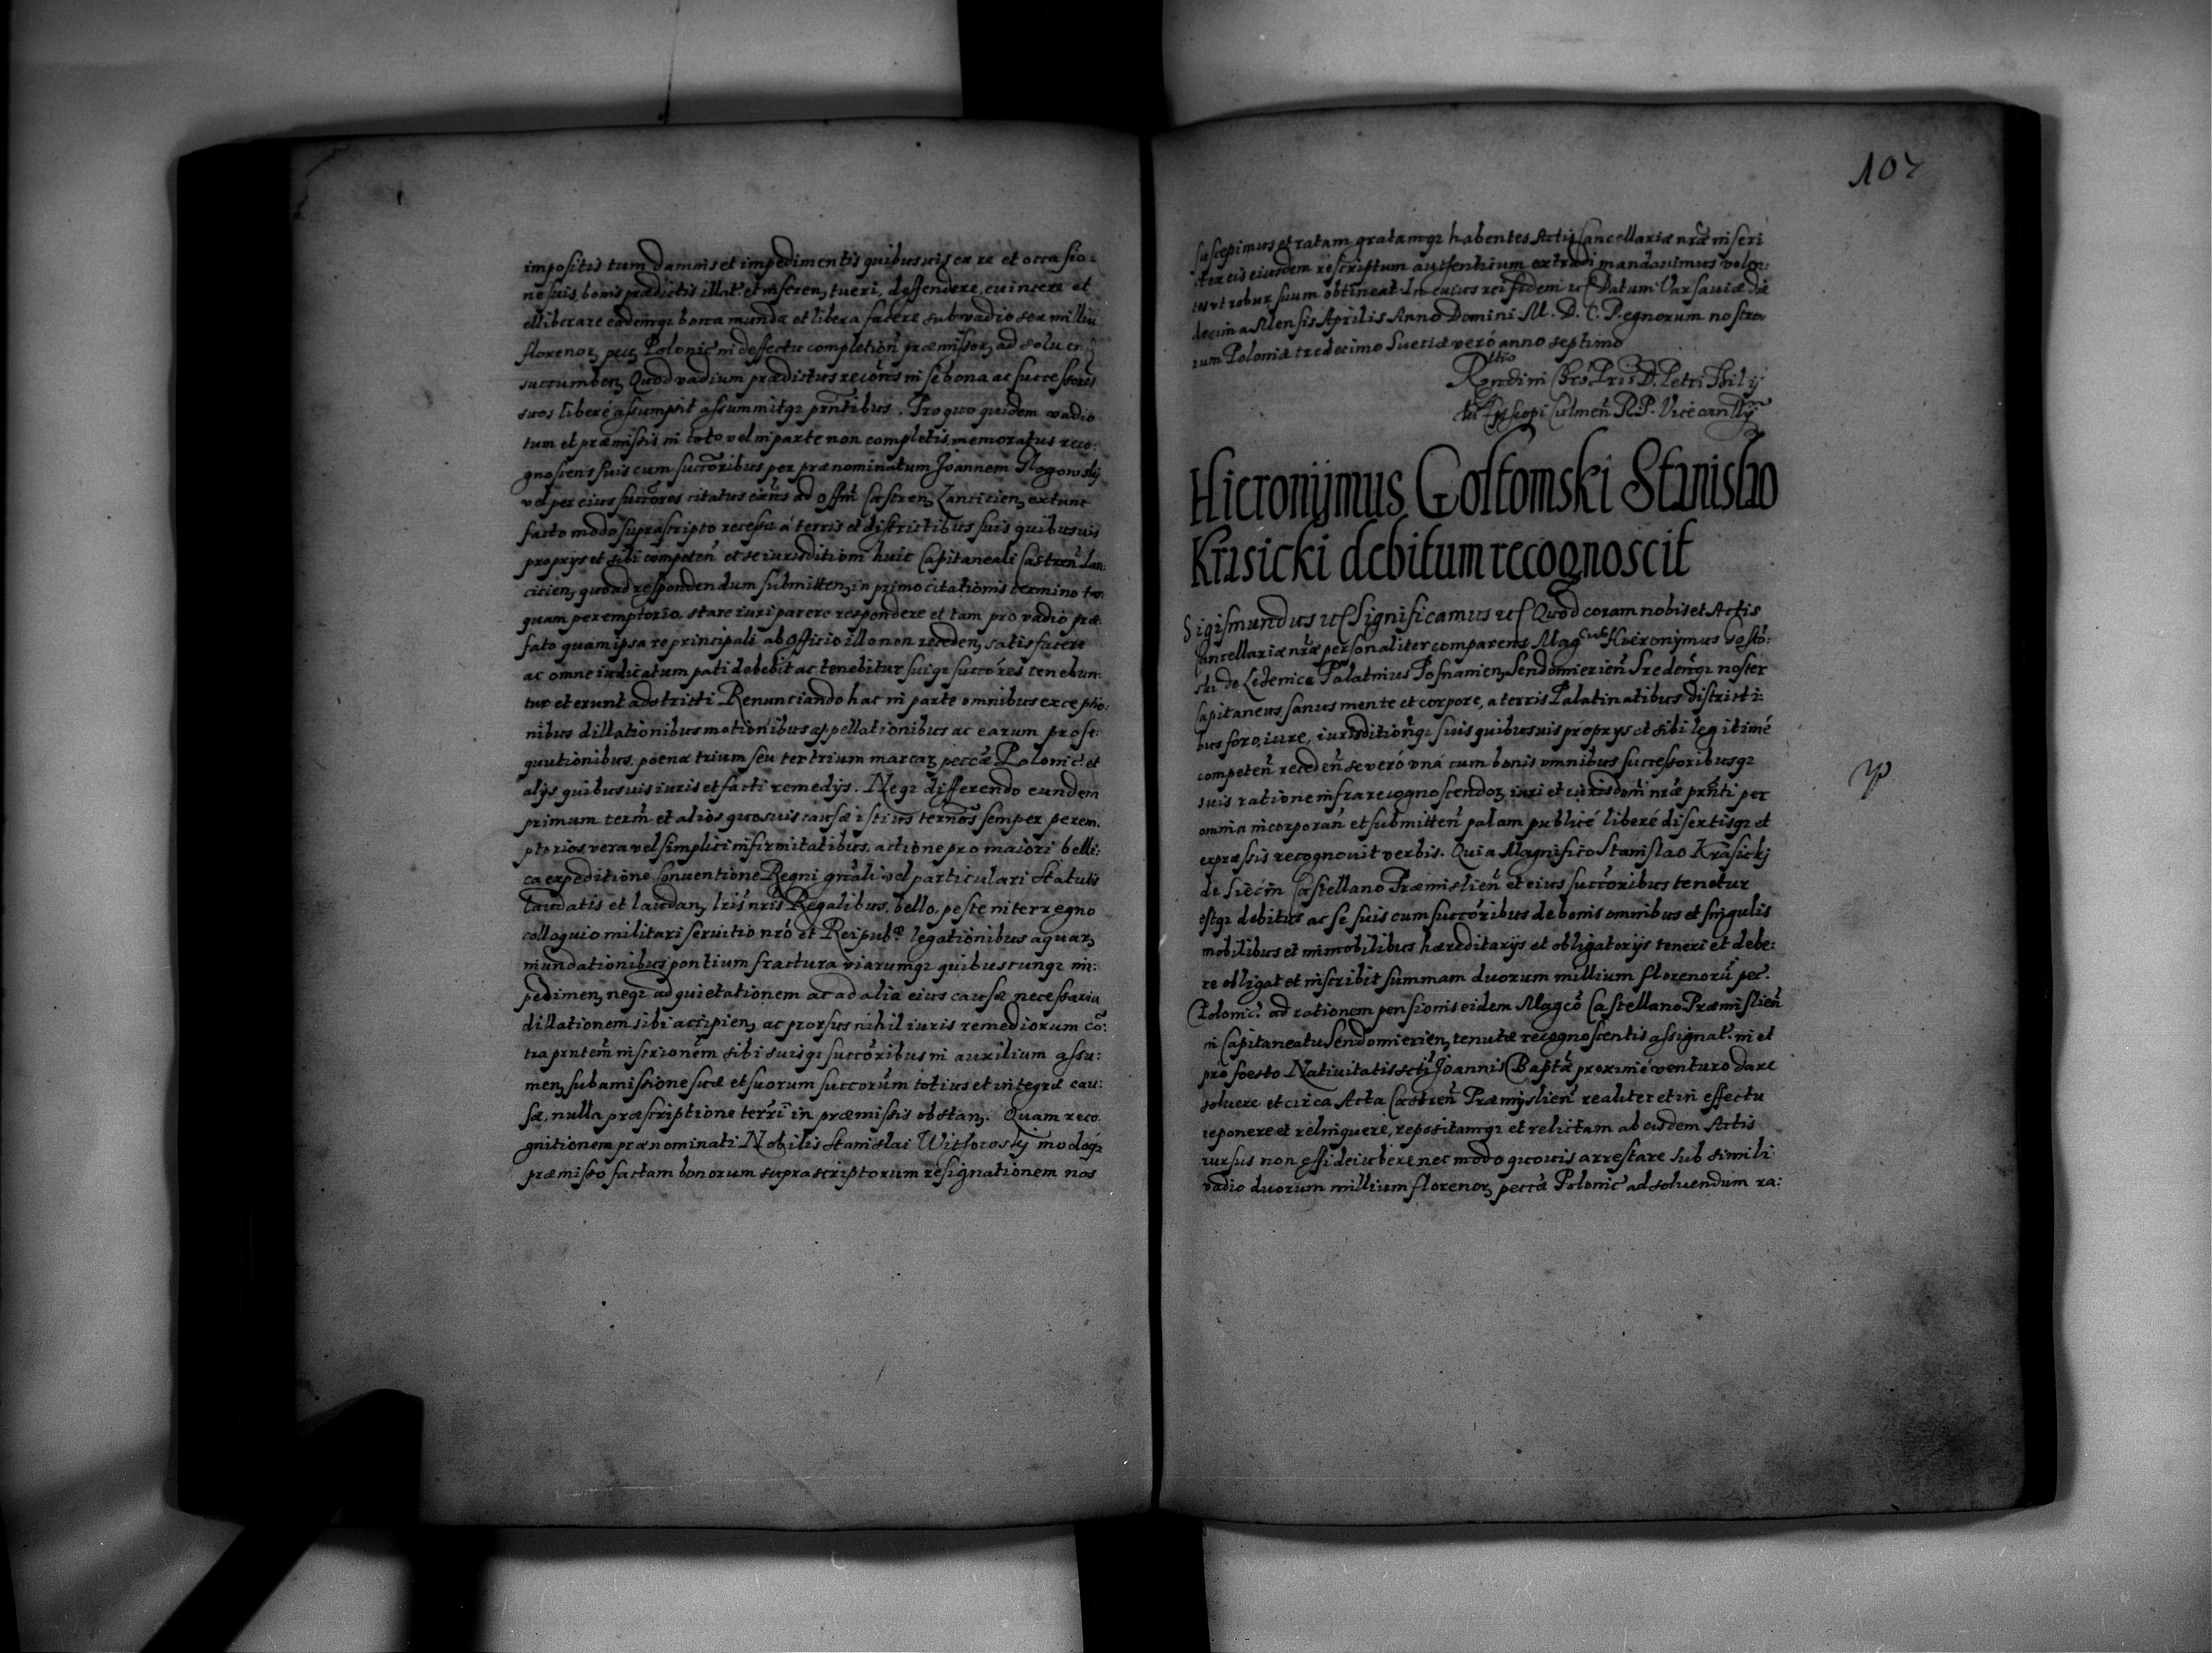 impositis tum damnis et impedimentis quibusuis ex re et occasio:
ne suis, bonis prædictis illat: et inferen, tueri, deffendere, euincere et
elliberare eademq bona munda et libera facere sub vadio sex milliu
florenor, pec, Polonic in deffectu completion præmissor, ad soluen
succumben, Quod vadium prædictus recons in se bona ac successores
suos liberé assumpsit assummitq prntibus. Pro quo quidem vadio
tum et præmissis in toto vel in parte non completis, memoratus reco:
gnoscens suis cum succoribus per prænominatum Joannem Glogowskj
vel per eius succores citatus exns ad offm Castren, Lancicien, extunc
facto modo suprascripto recessu á terris et districtibus suis quibusuis
proprys et sibi competen et se iurisditiom huic Capitaneali Castren Lan:
cicien, quoad respondendum submitten, in primo citationis termino tan
quam peremptorio, stare iuri parere respondere et tam pro vadio præ:
fato quam ipsa re principali ab officio illo non receden, satisfacere
ac omne iudicatum pati debebit ac tenebitur suiq succores tenebun:
tur et erunt adstricti Renunciando hac in parte omnibus exceptio:
nibus dillationibus motionibus appellationibus ac earum prose:
quutionibus. poenæ trium seu ter trium marcar, peccæ Polonic et
alys quibusuis iuris et facti remedys. Neq differendo eundem
primum term et alios quosuis causæ istius ternos semper perem:
ptorios vera vel simplici infirmitatibus, actione pro maiori belli:
ca expeditione Conuentione Regni gnali vel particulari statutis
laudatis et laudan, lris nris Regalibus, bello, peste interregno
colloquio militari seruitio nro et Reipub: legationibus aquar,
inundationibus pontium fractura viarumq quibuscunq im:
pedimen, neq ad quietationem ac ad alia eius causæ necessaria
dillationem sibi accipien, ac prorsus nihil iuris remediorum co:
tra prntem inscrionem sibi suisq succoribus in auxilium assu:
men, sub amissione suæ et suorum succorum totius et integræ cau:
sæ, nulla præscriptione terri in præmissis obstan. Quam reco
gnitionem prænominati Nobilis Stanislai modoq
præmisso factam bonorum suprascriptorum resignationem nos
107
suscepimus et ratam gratamq habentes Actis Cancellariæ nræ inseri
et ex eis eiusdem rescriptum authenticum extradi mandauimus volen:
tes vt robur suum obtineat. In cuius rei fidem Datum Varsauiæ die
decima Mensis Aprilis Anno Domini M. D. C. Regnorum nostro
rum Poloniæ tredecimo Sueciæ veró anno septimo
Rndini Chro Pris D. Petri Tilij
Epscopi Culmen R.P. Vicecanllij
Hieronijmus Gostomski Stanislao
Krasicki debitum recognoscit
Sigismundus Significamus Quod coram nobis et Actis
Cancellariæ nræ personaliter comparens Magcus Hieronymus Gosto:
ski de Ledenice Palatinus Posnanien, Sendomierien Sredenq noster
Capitaneus, sanus mente et corpore, a terris Palatinatibus districti:
bus foro, iure, iurisditionq suis quibusuis proprys et sibi legitimé
competen receden se veró vná cum bonis omnibus successoribusq
suis ratione infrarecognoscendor, iuri et iurisdomi nræ prnti per
omnia incorporan et submitten palam publicé liberé disertisq et
expræssis recognouit verbis. Quia Magnifico Stanislao Krasickj
de Siecin Castellano Præmislien et eius succoribus tenetur
estq debitus ac se suis cum succoribus de bonis omnibus et singulis
mobilibus et immobilibus hæreditarijs et obligatorijs teneri et debe:
re obligat et inscribit summam duorum millium florenoru pec:
Polonic: ad rationem pensionis eidem Magco Castellano Præmislien
in Capitaneatu Sendomierien, tenutæ recognoscentis assignat: in et
pro foesto Natiuitatis scti Joannis Baptæ proximé venturo dare
soluere et circa Acta Castren Præmyslien realiter et in effectu
reponere et relinquere, repositamq et relictam ab eisdem Actis
rursus non effideiubere nec modo quouis arrestare sub simili
vadio duorum millium florenor, peccæ Polonic ad soluendum ra: